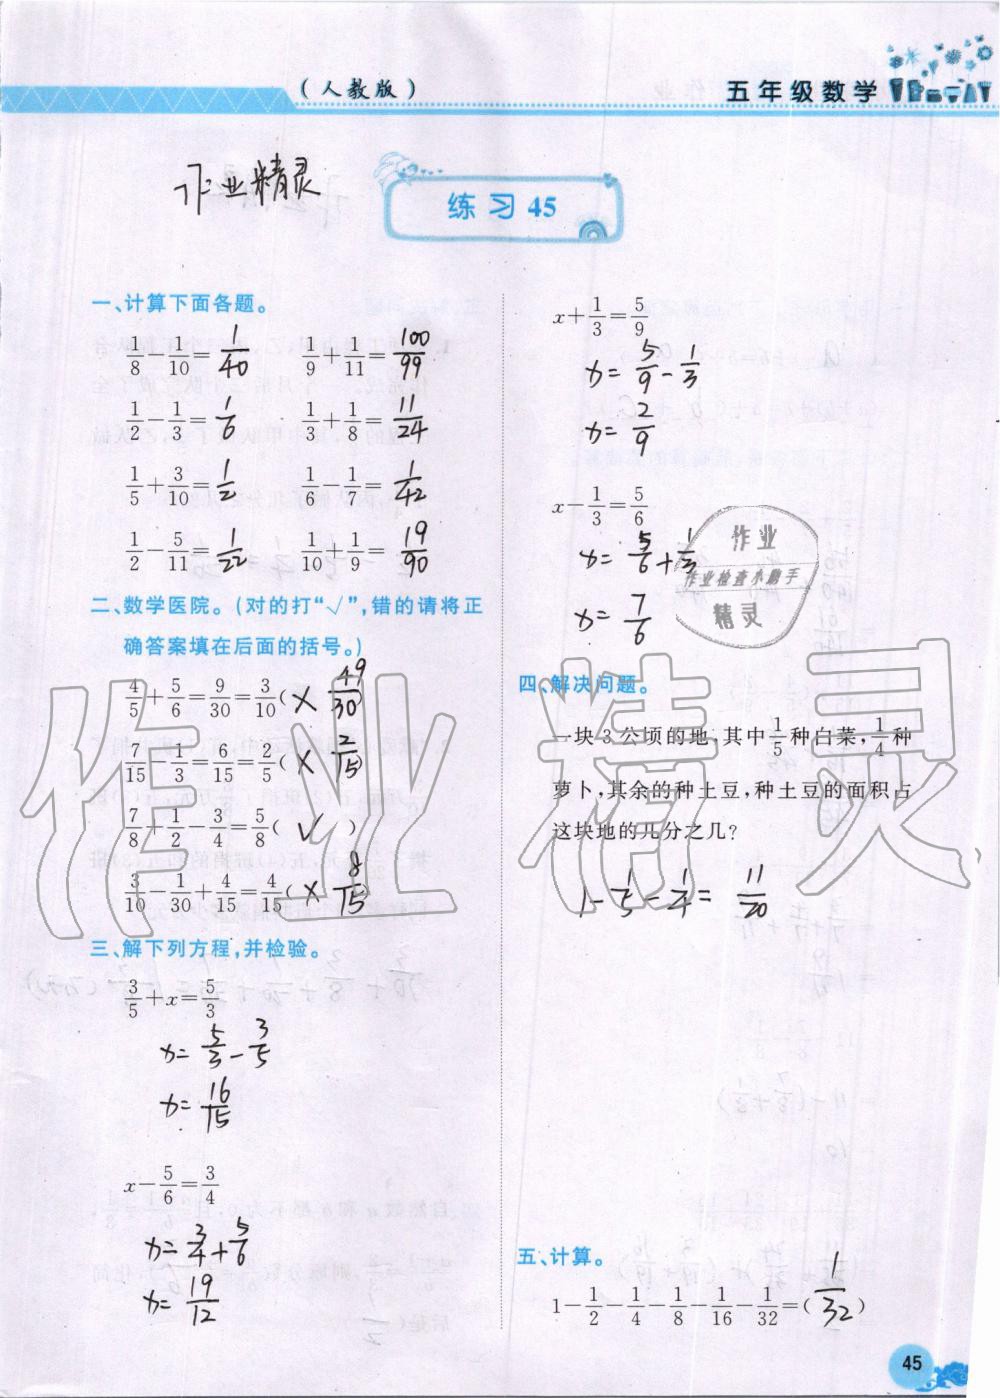 (人教版)
五年级数学
作业精灵
练习 45
一、计算下面各题。
1/8 − 1/10 = 1/40    1/9 + 1/11 = 100/99
1/2 − 1/3 = 1/6    1/3 + 1/8 = 11/24
1/5 + 3/10 = 1/2    1/6 − 1/7 = 1/42
1/2 − 5/11 = 1/22    1/10 + 1/9 = 19/90
二、数学医院。(对的打“√”,错的请将正
确答案填在后面的括号。)
4/5 + 5/6 = 9/30 = 3/10 (× 49/30)
7/15 − 1/3 = 6/15 = 2/5 (× 2/15)
7/8 + 1/2 − 3/4 = 5/8 ( √ )
3/10 − 1/30 + 4/15 = 4/15 (× 8/15)
三、解下列方程,并检验。
3/5 + x = 5/3
x = 5/3 − 3/5
x = 16/15
x − 5/6 = 3/4
x = 3/4 + 5/6
x = 19/12
x + 1/3 = 5/9
x = 5/9 − 1/3
x = 2/9
x − 1/3 = 5/6
x = 5/6 + 1/3
x = 7/6
作业
作业检查小助手
精灵
四、解决问题。
一块 3 公顷的地,其中 1/5 种白菜, 1/4 种
萝卜,其余的种土豆,种土豆的面积占
这块地的几分之几?
1 − 1/5 − 1/4 = 11/20
五、计算。
1 − 1/2 − 1/4 − 1/8 − 1/16 − 1/32 = ( 1/32 )
45
作业精灵